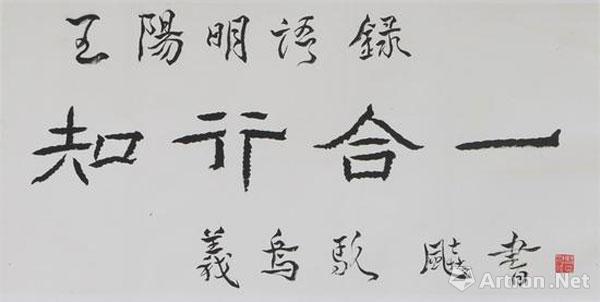 王陽明語錄
知行合一
義烏駱 書
Artron.Net